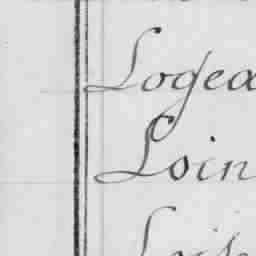 Logea
Loin